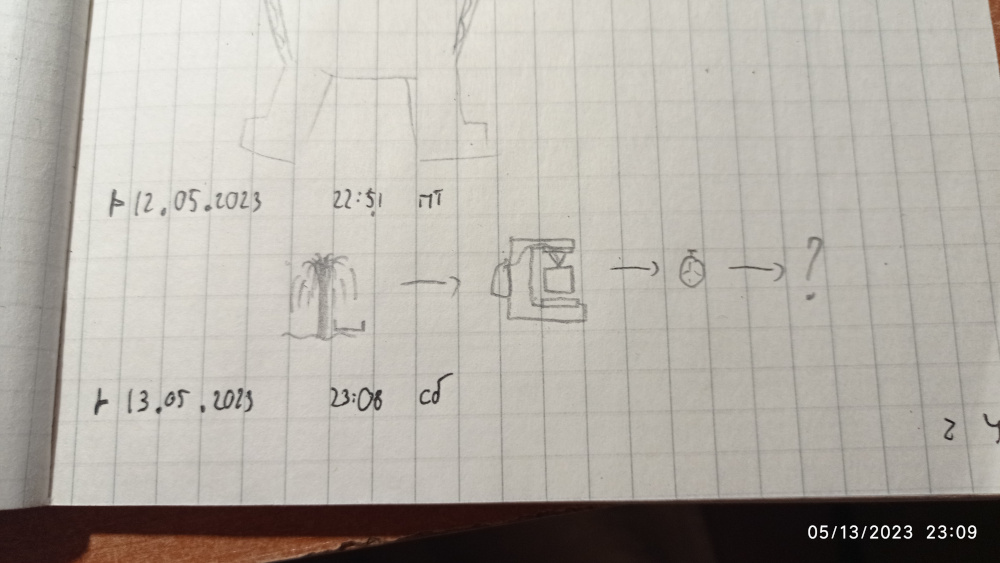 12.05.2023 22:51 пт
?
13.05.2023 23:08 сб
2 4
05/13/2023 23:09